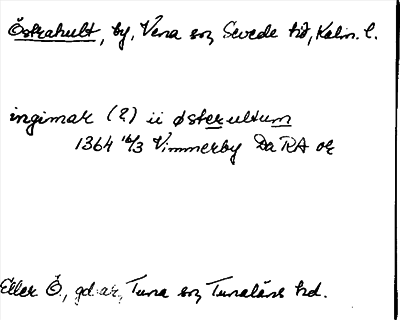 Östrahult, by, Vena sn, Sevede hd, Kalm. l.
ingimar (?) ii østerultum
1364 16/3 Vimmerby Da RA or
Eller Ö., gdar, Tuna sn, Tunaläns hd.